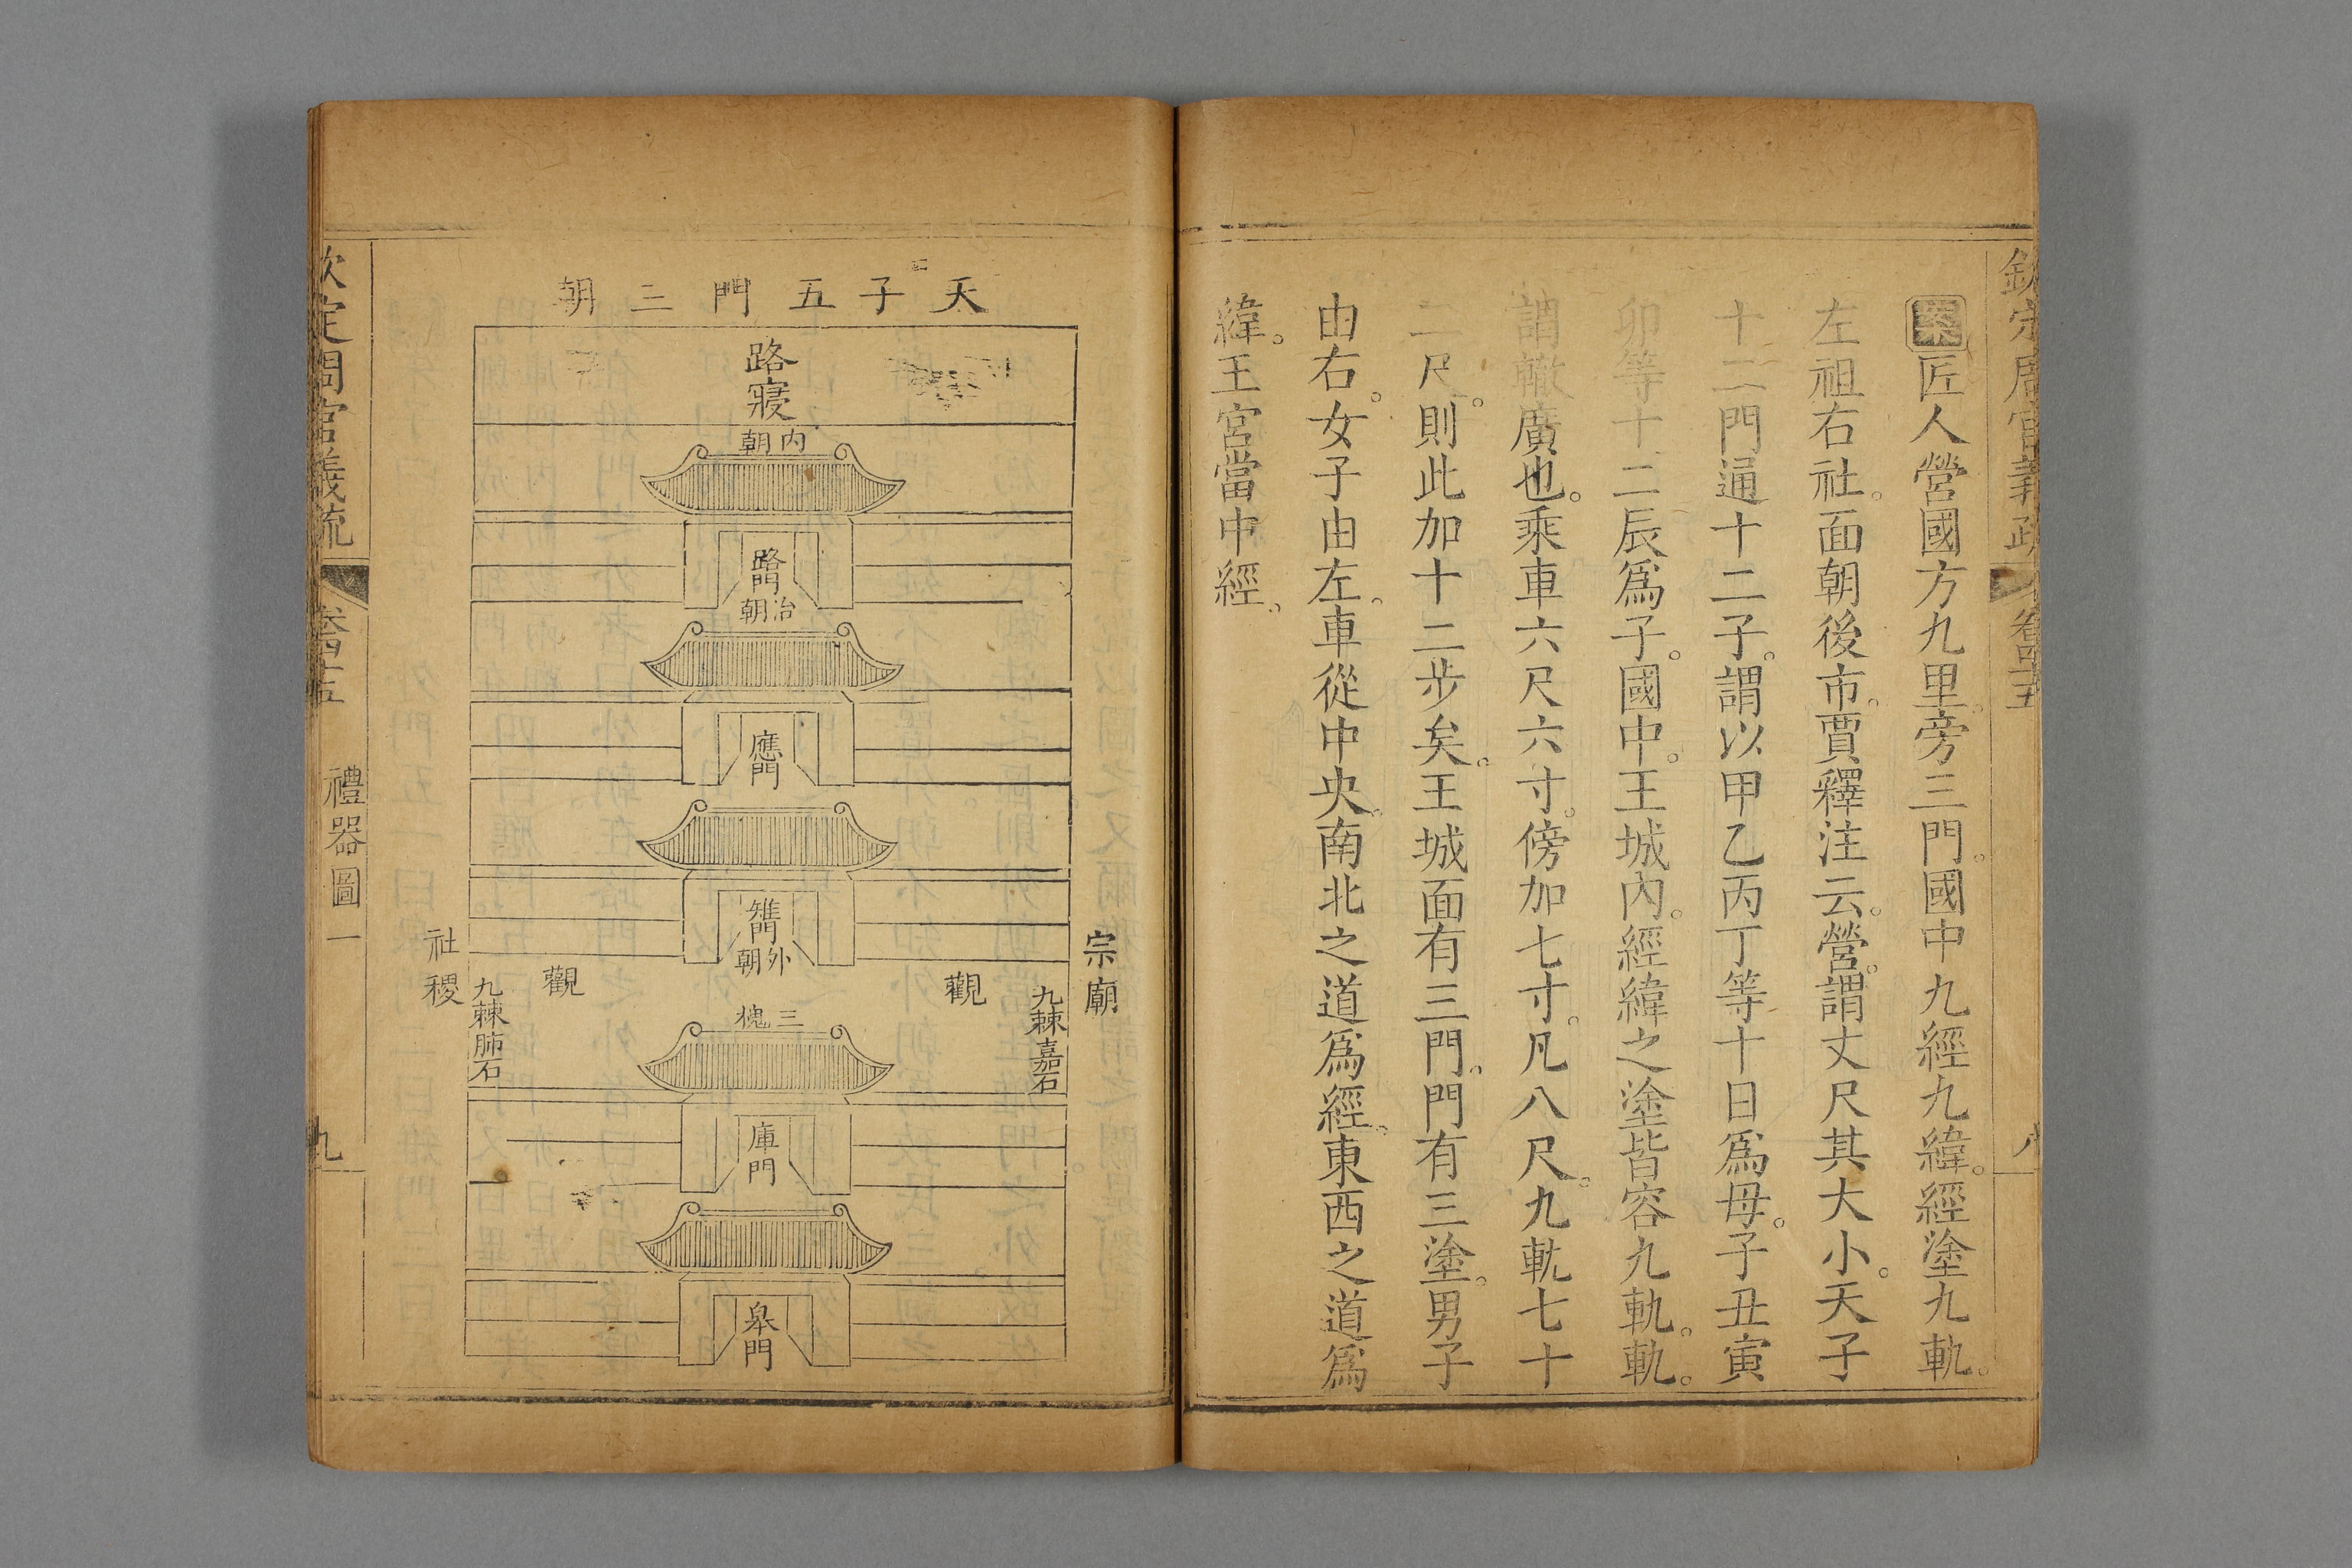 欽定周官義疏 卷四十五 八
案匠人營國方九里。旁三門。國中九經九緯。經塗九軌。
左祖右社。面朝後市。賈釋注云。營。謂丈尺其大小。天子
十二門通十二子。謂以甲乙丙丁等十日爲母。子丑寅
卯等十二辰爲子。國中。王城內。經緯之塗皆容九軌。軌。
謂轍廣也。乘車六尺六寸。傍加七寸。凡八尺。九軌七十
二尺。則此加十二步矣。王城面有三門。門有三塗。男子
由右。女子由左。車從中央。南北之道爲經。東西之道爲
緯。王宮當中經。
天子五門三朝
路寢
內朝
路門
治朝
應門
雉門
外朝
宗廟
觀
觀
社稷
九棘嘉石
九棘肺石
三槐
庫門
皋門
欽定周官義疏 卷四十五 禮器圖一 九